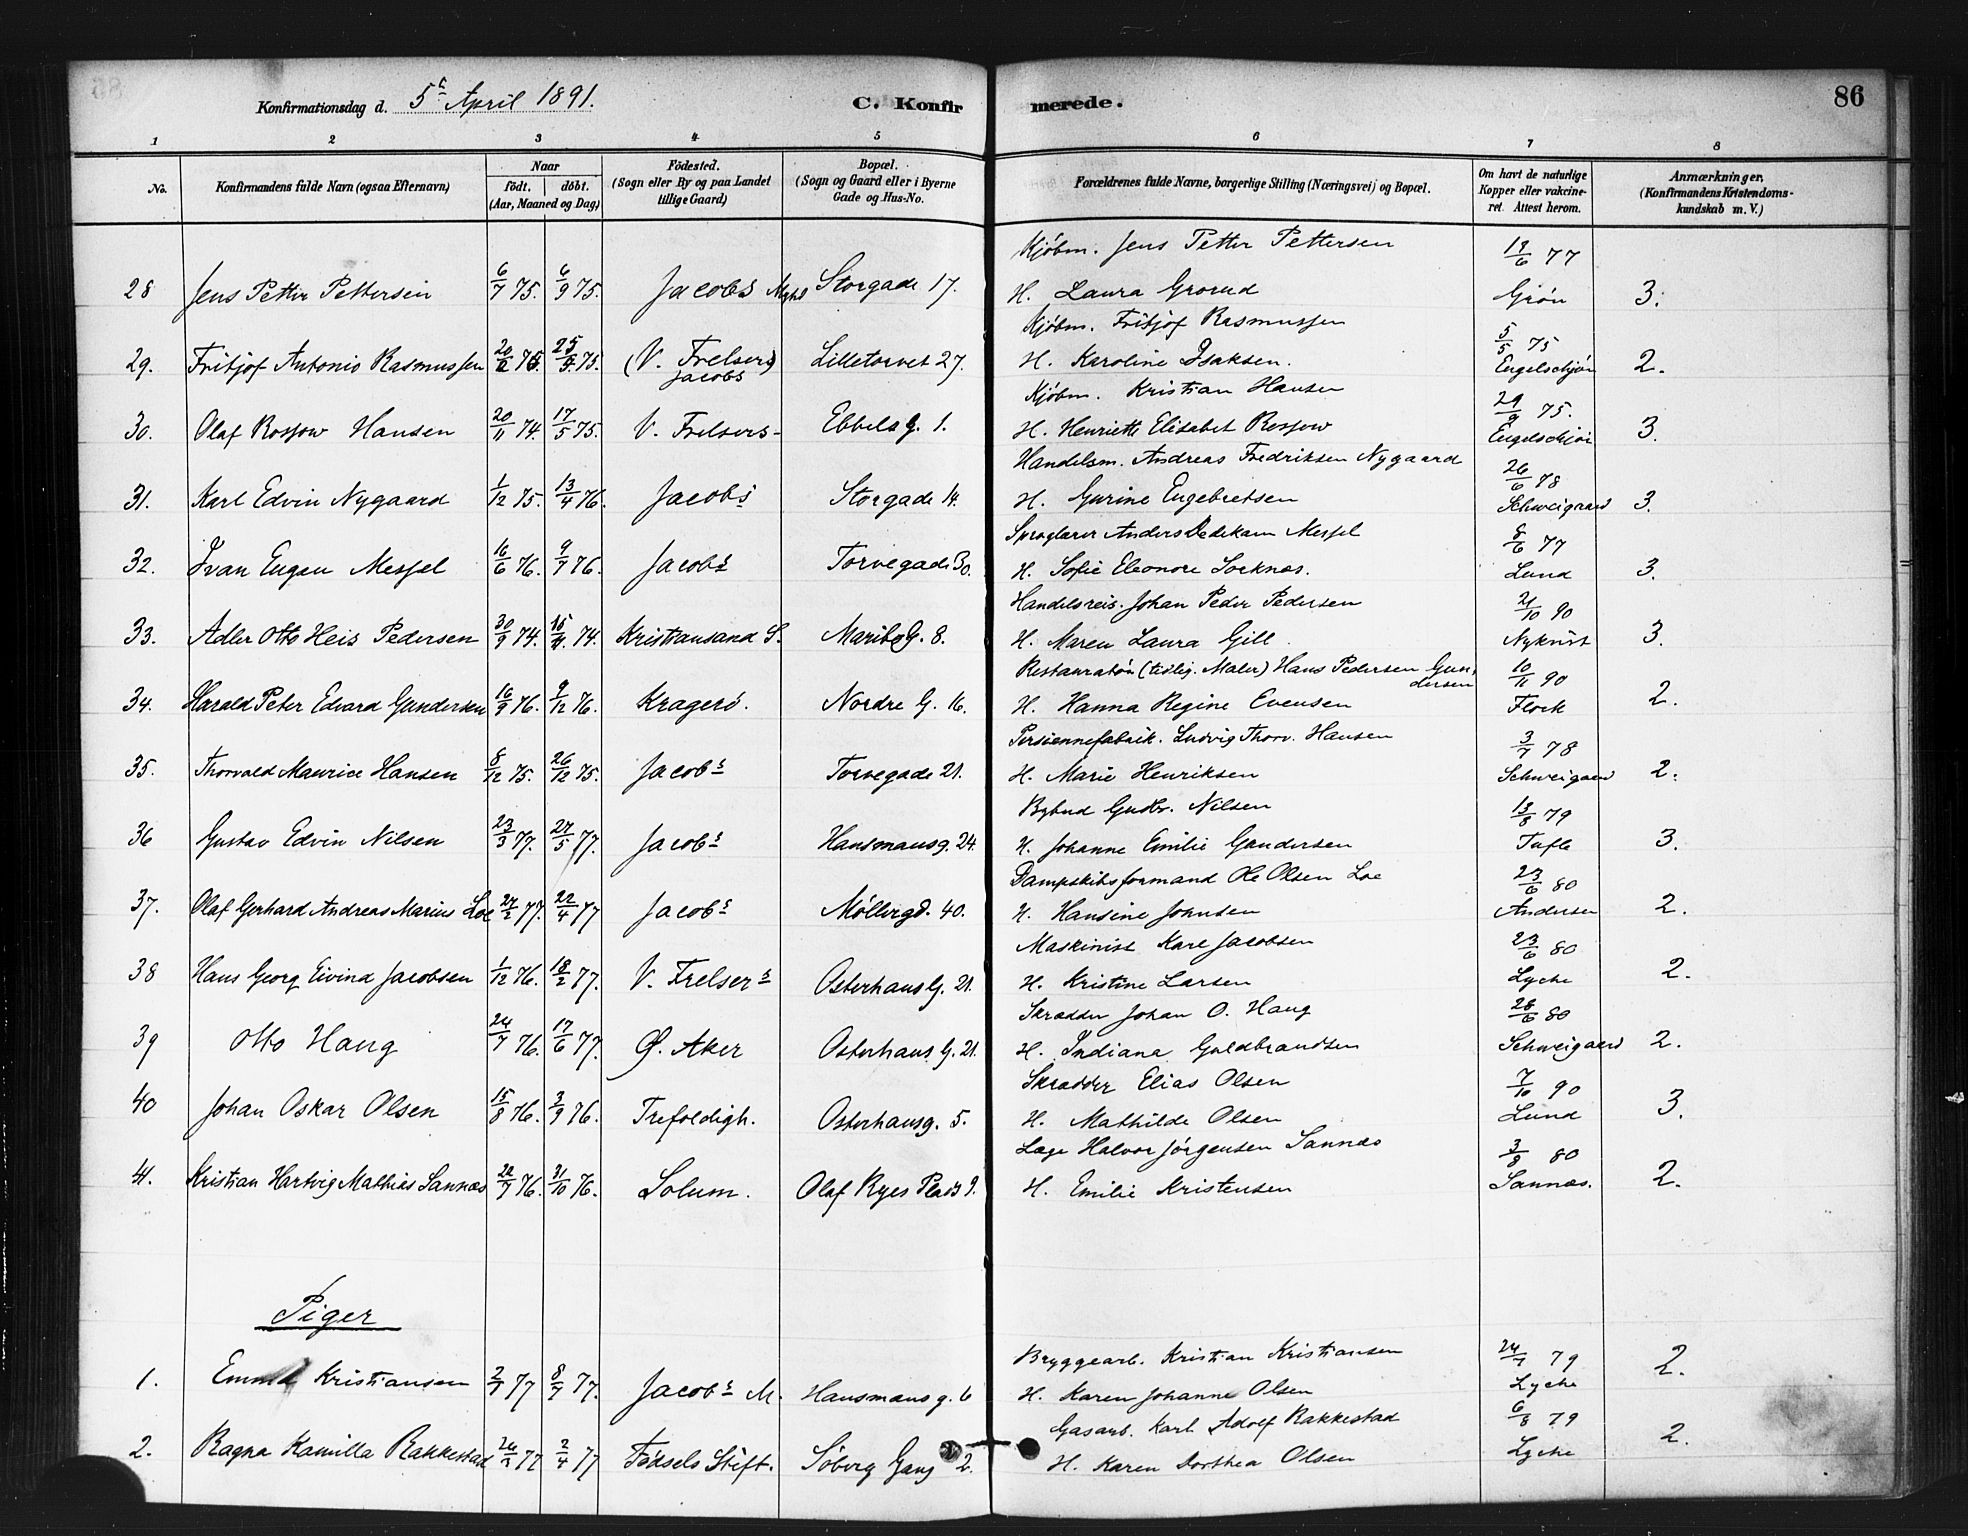 Konfirmationsdag d. 5te April 1891. C. Konfirmerede. 86
1 2 3 4 5 6 7 8
No. Konfirmandens fulde Navn (ogsaa Efternavn) Naar födt. döbt. (Aar, Maaned og Dag) Födested. (Sogn eller By og paa Landet tillige Gaard) Bopæl. (Sogn og Gaard eller i Byerne Gade og Hus-No. Forældrenes fulde Navne, borgerlige Stilling (Næringsvei) og Bopæl. Om havt de naturlige Kopper eller vakcineret. Attest herom. Anmærkninger, (Konfirmandens Kristendomskundskab m. V.)
Kjöbm. Jens Petter Pettersen 19/6 77
28 Jens Petter Pettersen 6/7 75. 6/9 75. Jacobs Storgade 17. H. Laura Grorud Grön 3.
Kjöbm. Fritjof Rasmussen 5/5 75
29. Fritjof Antonio Rasmussen 75. (V. Frelsers) Jacobs Lilletorvet 27. H. Karoline Isaksen. Engelschjön 2.
Kjöbm. Kristian Hansen 29/9 75.
30. Olaf Rossow Hansen 20/11 74. 17/5 75. V. Frelsers- Ebbels g. 1. H. Henriette Elisabet Rossow Engelschjön 3.
Handelsm. Andreas Fredriksen Nygaard 26/6 78
31. Karl Edvin Nygaard 1/12 75. 13/4 76. Jacobs Storgade 14. H. Gurine Engebretsen Schweigaard 3.
Sproglærer Anders Messel 8/6 77
32. Ivan Eugen Messel 16/6 76. 9/7 76. Jacobs Torvegade 30. H. Sofie Eleonore Sorknæs. Lund 3.
Handelsreis. Johan Peder Pedersen 21/10 90
33. Adler Otto Heis Pedersen 30/9 74. 74. Kristiansand S. Maribo G. 8. H. Maren Laura Gill. Nykvist 3.
Restauratör (tidlig. Maler) Hans Pedersen Gundersen 10/11 90
34. Harald Peter Edvard Gundersen 16/9 76. 9/12 76. Kragerö. Nordre G. 16. H. Hanna Regine Evensen Flock 2.
Persiennefabrik. Ludvig Thorv. Hansen 3/7 78
35. Thorvald Maurice Hansen 8/12 75. 26/12 75. Jacobs Torvegade 21. H. Marie Henriksen Schweigaard 2.
Bybud Gudbr. Nilsen 13/8 79
36 Gustav Edvin Nilsen 23/3 77. 27/5 77. Jacobs Hausmansg. 24. H. Johanne Emilie Gundersen Tufte 3.
Dampskibsformand Ole Olsen Loe 23/6 80
37. Olaf Gerhard Andreas Marius Loe 27/2 77. 22/4 77 Jacobs Möllergd. 40. H. Hansine Johnsen Andersen 2.
Maskinist Karl Jacobsen 23/6 80
38 Hans Georg Eivind Jacobsen 1/12 76. 18/2 77. V. Frelsers Osterhaus G. 21. H. Kristine Larsen Lyche 2.
Skrædder Johan O. Haug 28/6 80
39 Otto Haug 24/7 76. 17/6 77. Ø. Aker Osterhaus G. 21. H. Indiana Guldbrandsen Schweigaard 2.
Skrædder Elias Olsen 7/10 90
40 Johan Oskar Olsen 15/8 76. 3/9 76. Trefoldigh. Osterhausg. 5. H. Mathilde Olsen Lund 3.
Læge Halvor Jörgensen Sannæs 3/8 80
41. Kristian Hartvig Mathias Sannæs 22/7 76. 31/10 76. Solum. Olaf Ryes Plads 9. H. Emilie Kristensen Sannæs. 2.
Piger
Bryggearb. Kristian Kristiansen 24/7 79
1. Emma Kristiansen 2/7 77 8/7 77. Jacobs M. Hausmansg. 6 H. Karen Johanne Olsen Lyche 2.
Gasarb. Karl Adolf Rakkestad 6/8 79
2. Ragna Kamilla Rakkestad 77 2/4 77 Födsels Stift. Söberg Gang 2. H. Karen Dorthea Olsen Lyche 2.